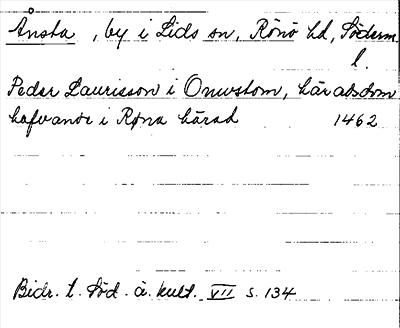 Ånsta, by i Lids sn, Rönö hd, Söderm.
l.
Peder Laurisson i Onwstom, häradsdom
hafvande i Røna härad 1462
Bidr. t. Söd. ä. kult. VII s. 134